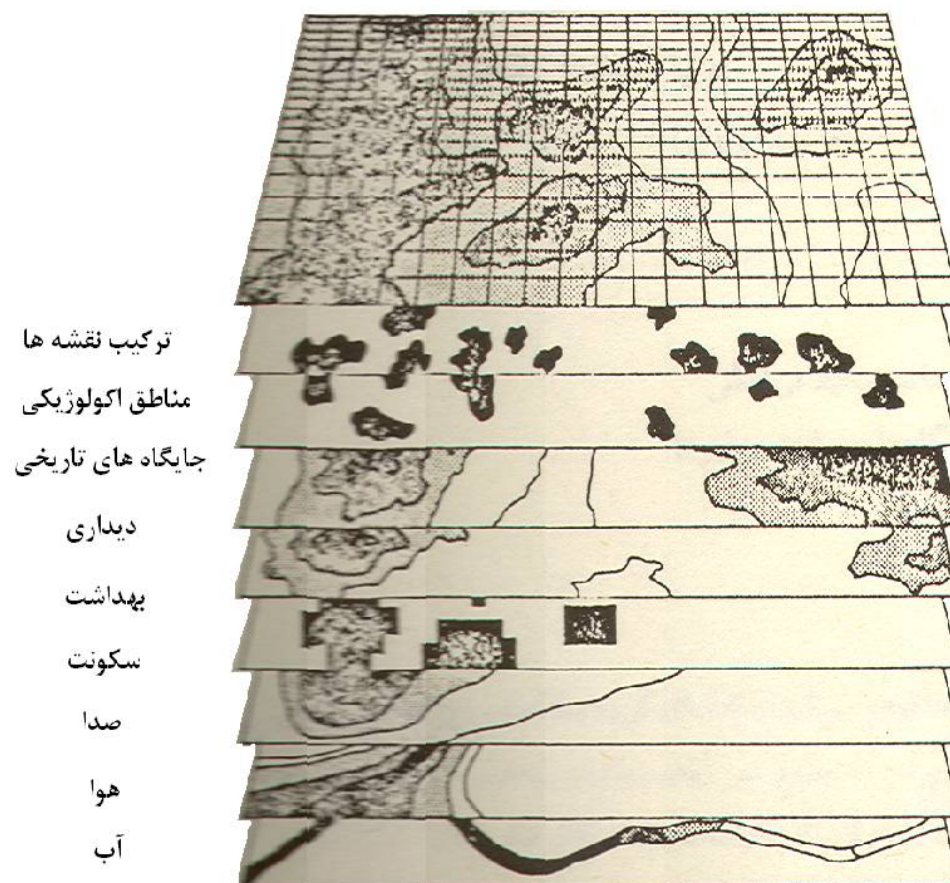 ترکیب نقشه ها
مناطق اکولوژیکی
جایگاه های تاریخی
دیداری
بهداشت
سکونت
صدا
هوا
آب